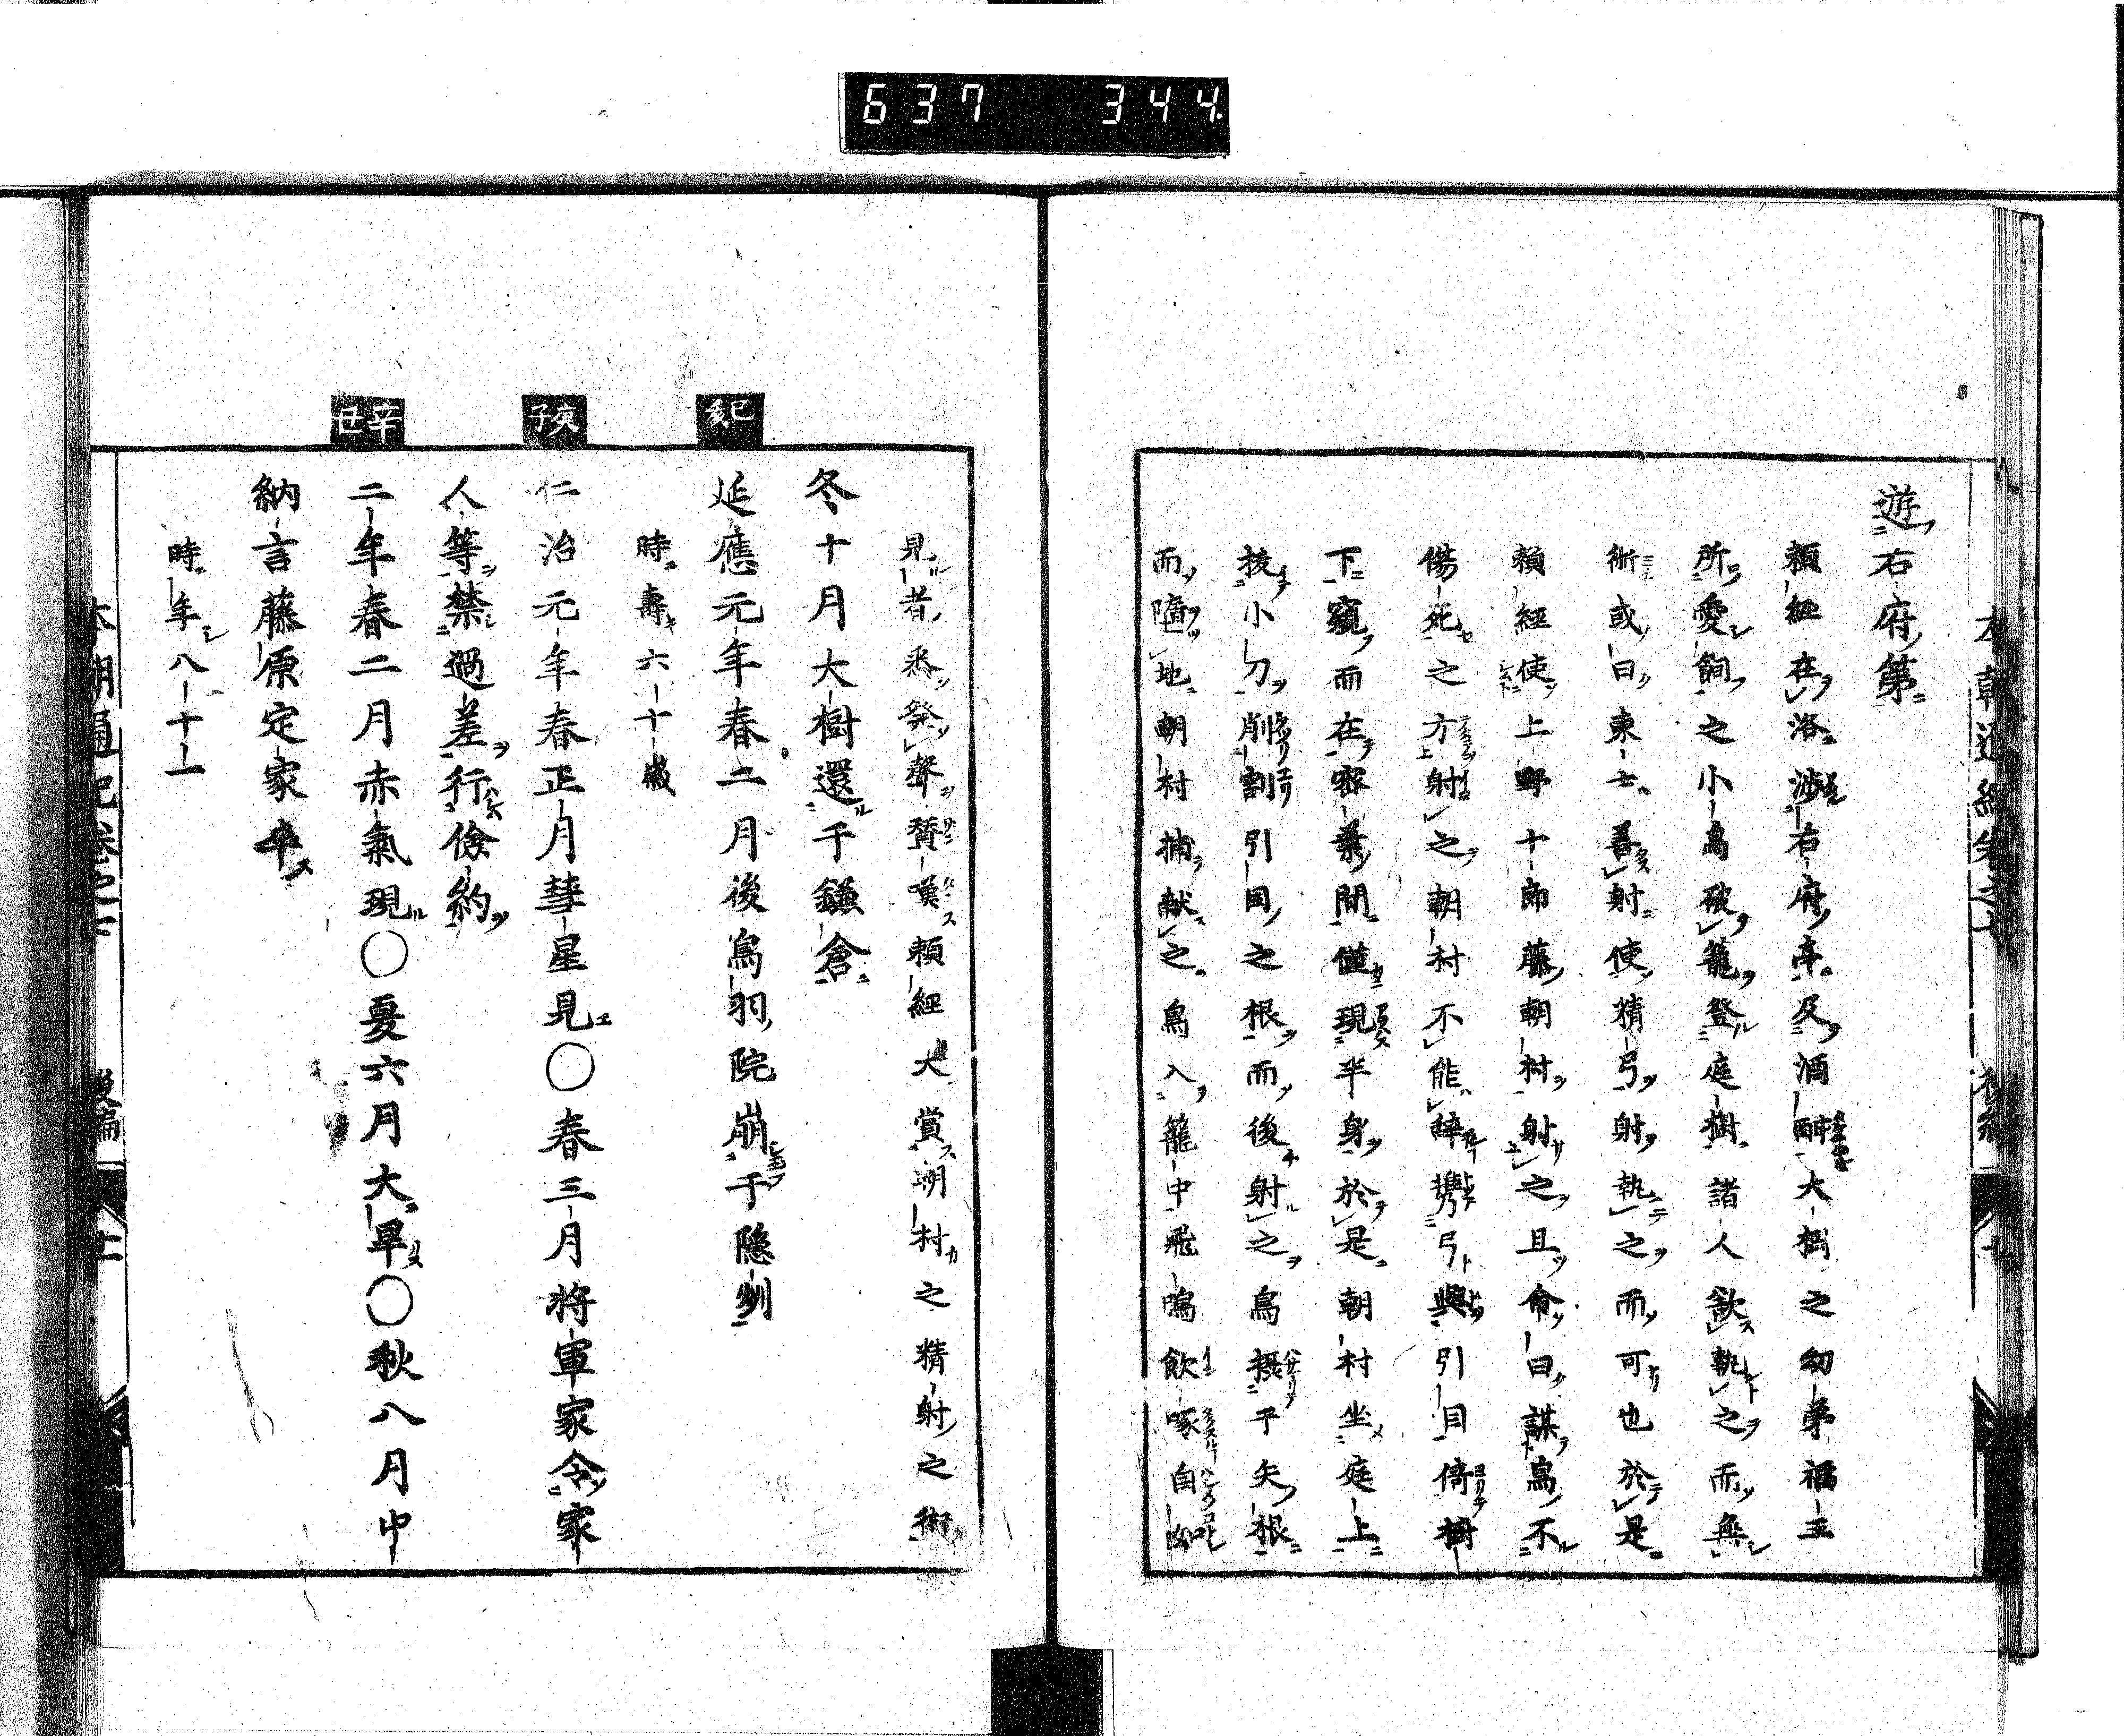 637 344
遊右府第
頼經在洛渉右府亭及酒酣大樹之幼弟福王
所愛飼之小鳥破籠登庭樹諸人欲執之而無
術或曰東士善射使精弓射執之而可也於是
頼經使上野十郎藤朝村射之且命曰謀鳥不
傷死之方射之朝村不能辭攜弓與引目倚樹
下窺而在密葉間僅現半身於是朝村坐庭上
拔小刀削割引目之根而後射之鳥摂于矢根
而墮地朝村捕献之鳥入籠中飛鳴飲啄自如
見者悉發聲賛嘆頼經大賞朝村之精射之術
冬十月大樹還于鎌倉
己亥
延應元年春二月後鳥羽院崩于隠州
時壽六十歳
庚子
仁治元年春正月彗星見〇春三月将軍家令家
人等禁過差行儉約
辛丑
二年春二月赤氣現〇夏六月大旱〇秋八月中
納言藤原定家卒
時年八十一
本朝通紀巻之七 後編